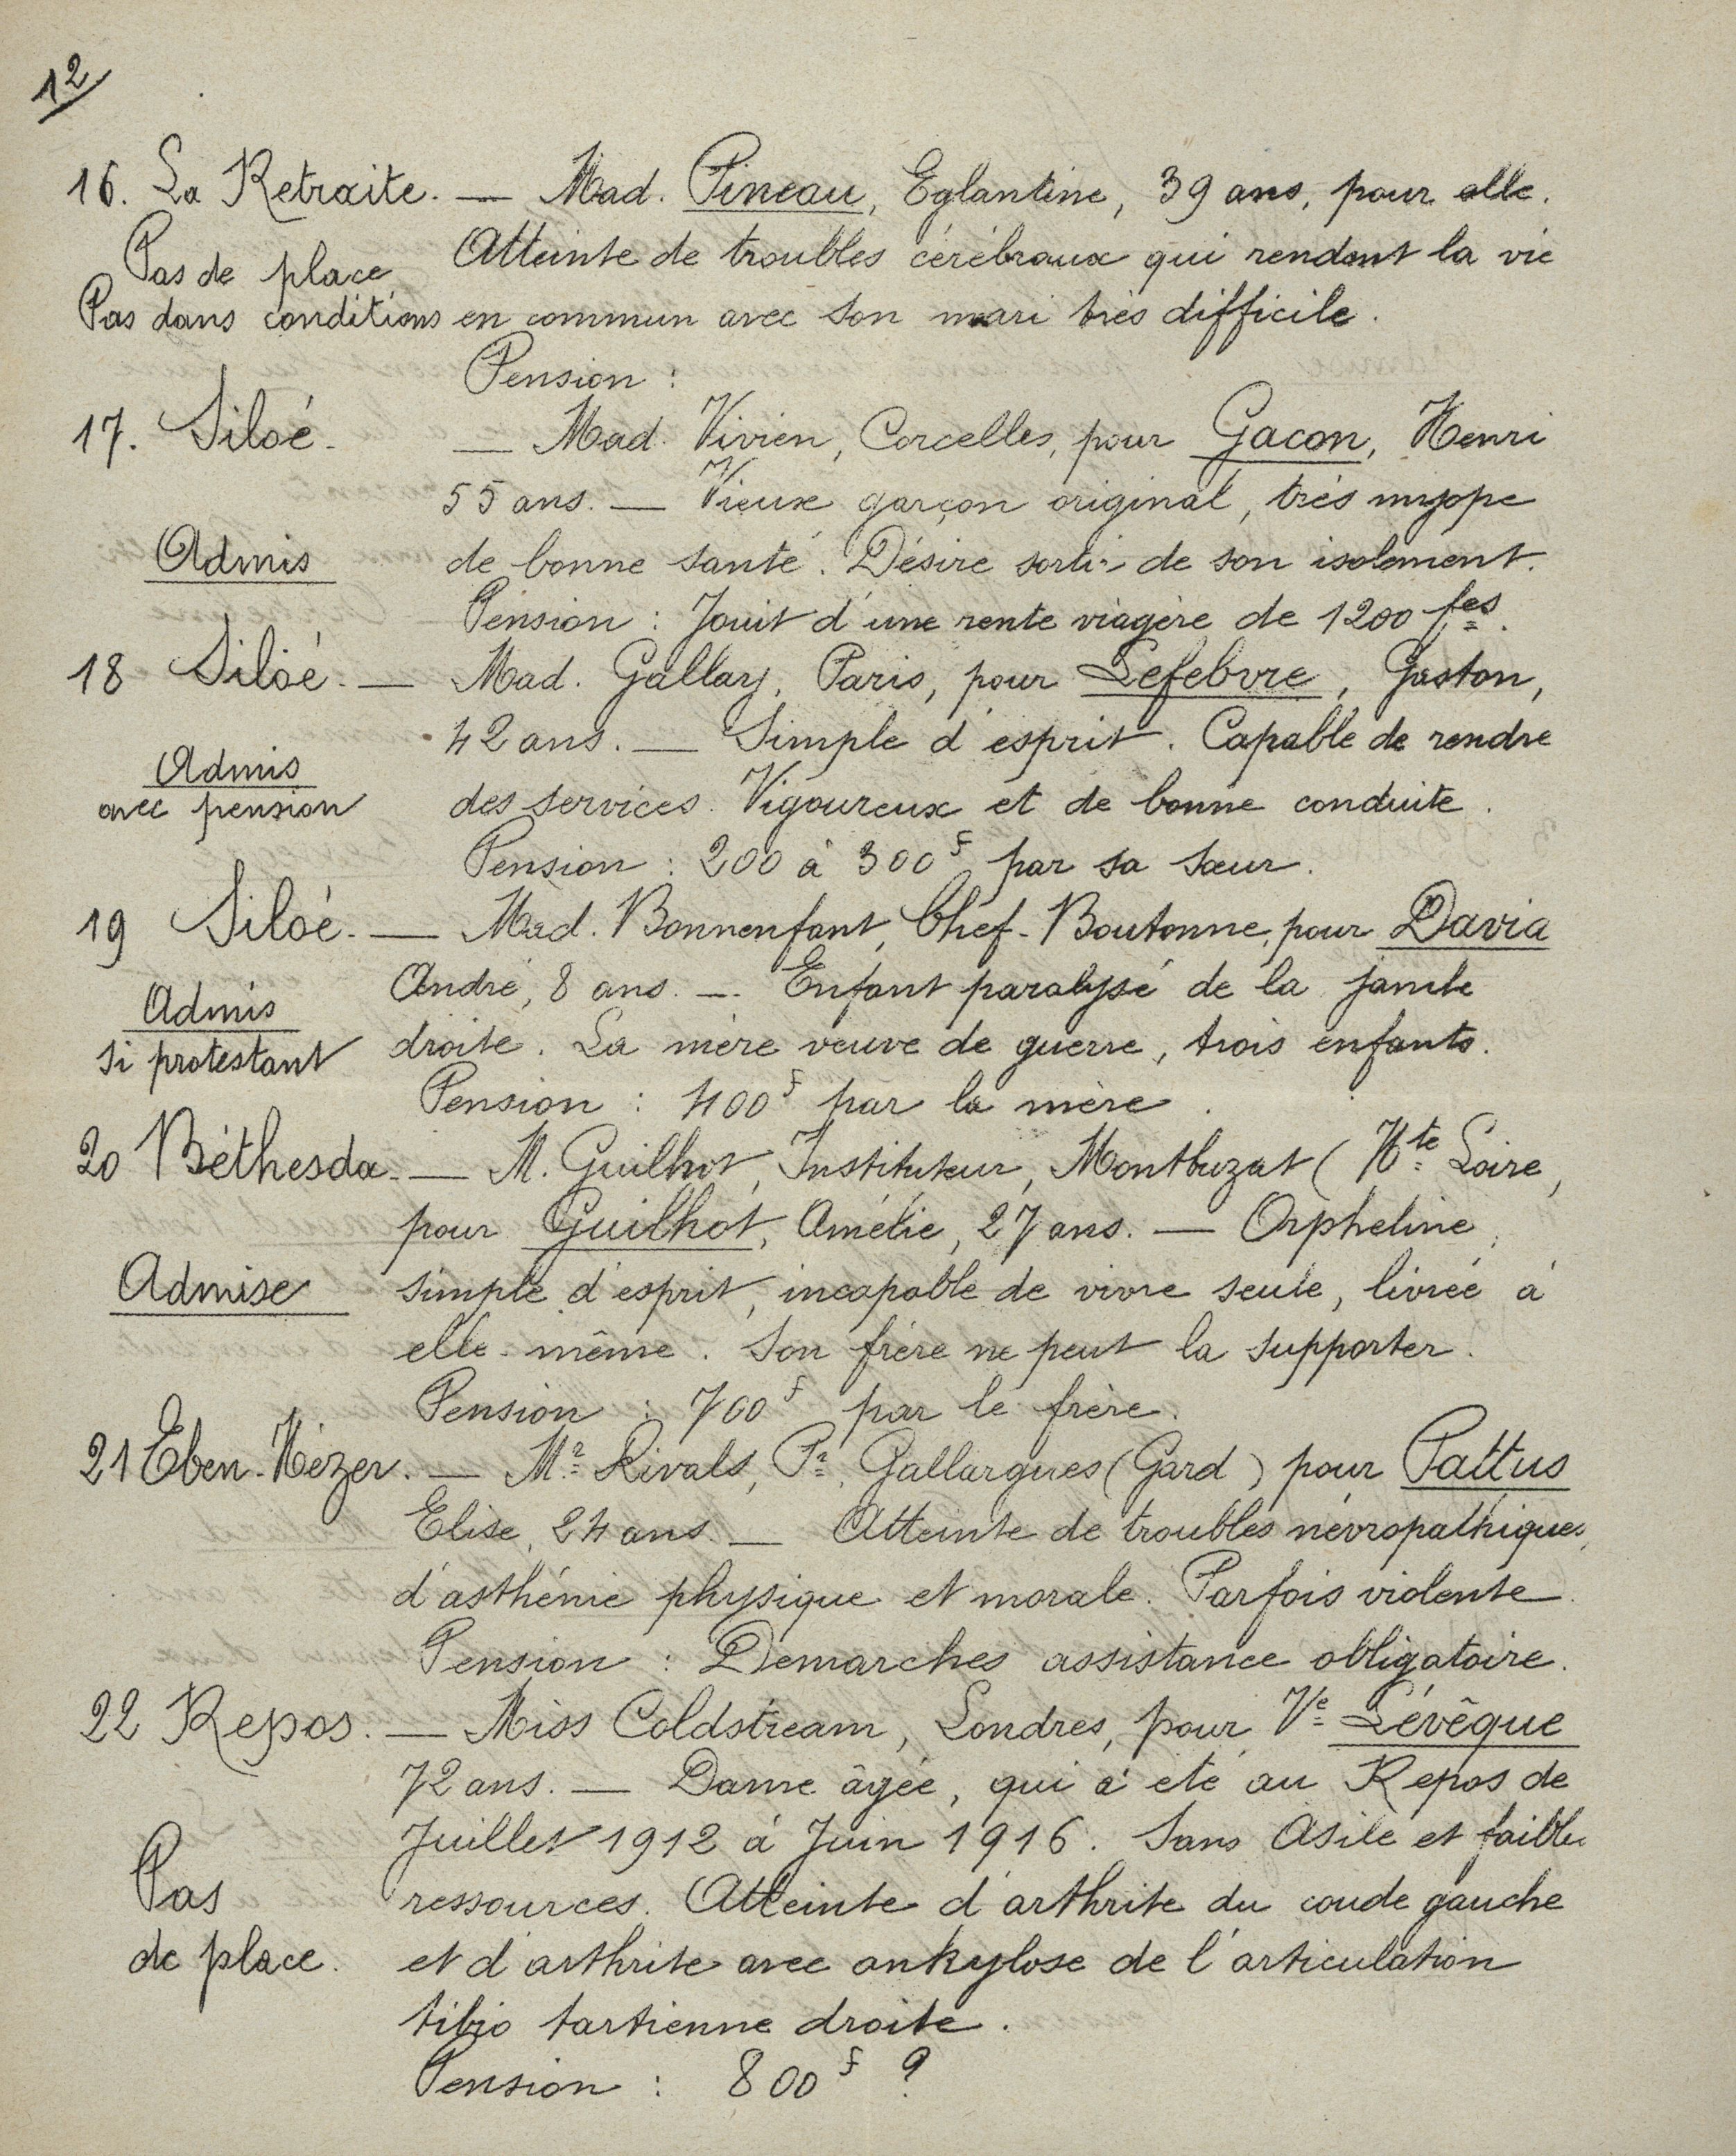 12
16. La Retraite. — Mad. Pineau, Eglantine, 39 ans, pour elle.
Pas de place
Pas dans conditions
Atteinte de troubles cérébraux qui rendent la vie
en commun avec son mari très difficile.
Pension :
17. Siloé. — Mad. Vivien, Corcelles, pour Gacon, Henri
55 ans. — Vieux garçon original, très myope
Admis
de bonne santé. Désire sortir de son isolement.
Pension : Jouit d'une rente viagère de 1200 fcs.
18 Siloé. — Mad. Gallay, Paris, pour Lefebvre, Gaston,
42 ans. — Simple d'esprit. Capable de rendre
Admis
avec pension
des services. Vigoureux et de bonne conduite.
Pension : 200 à 300 f par sa sœur.
19 Siloé. — Mad. Bonnenfant, Chef-Boutonne, pour Davia
André, 8 ans. — Enfant paralysé de la jambe
Admis
si protestant
droite. La mère veuve de guerre, trois enfants.
Pension : 400 f par la mère.
20 Béthesda. — M. Guilhot, Instituteur, Montbuzat (Hte Loire,
pour Guilhot, Amélie, 27 ans. — Orpheline,
Admise
simple d'esprit, incapable de vivre seule, livrée à
elle-même. Son frère ne peut la supporter.
Pension : 700 f par le frère.
21 Eben-Hézer. — Mr Rivals, Pr, Gallargues (Gard) pour Pattus
Elise, 24 ans. — Atteinte de troubles névropathiques,
d'asthénie physique et morale. Parfois violente.
Pension : Démarches assistance obligatoire.
22 Repos. — Miss Coldstream, Londres, pour Ve Lévêque
72 ans. — Dame âgée, qui a été au Repos de
Juillet 1912 à Juin 1916. Sans Asile et faibles
Pas
de place.
ressources. Atteinte d'arthrite du coude gauche
et d'arthrite avec ankylose de l'articulation
tibio tartienne droite.
Pension : 800 f ?